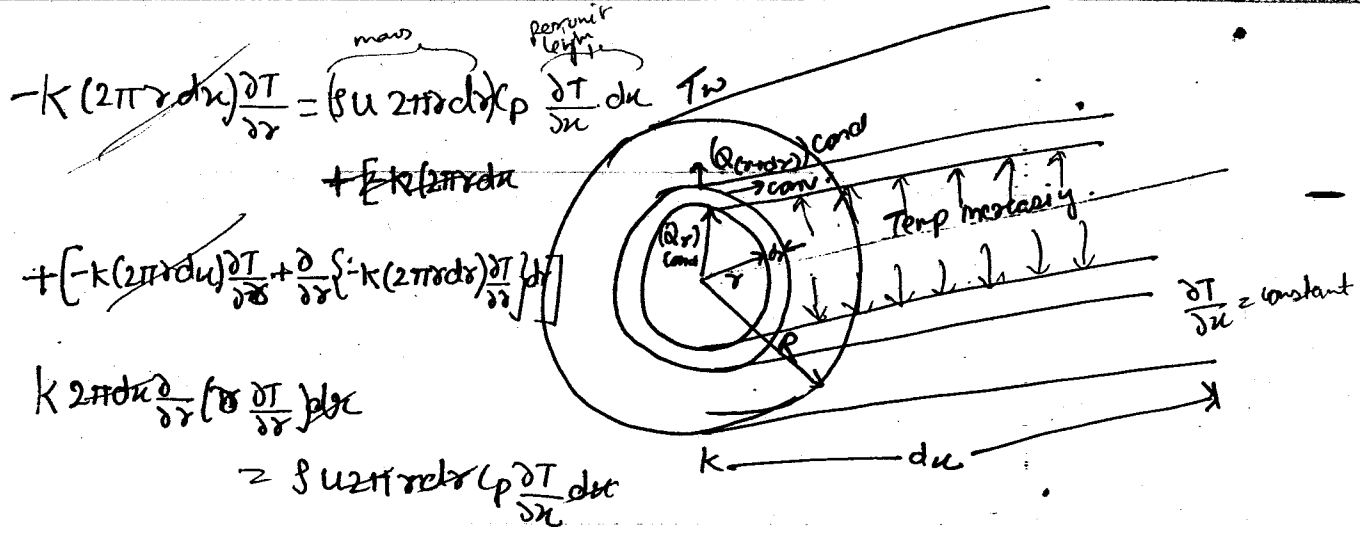 mass
per unit length
-K (2πr dx) ∂T/∂r = (ρu 2πr dr) Cp ∂T/∂x . dx
+ [-k (2πr dx
+ [-K (2πr dx) ∂T/∂r + ∂/∂r {-K (2πr dr) ∂T/∂r} dr]
K 2π dx ∂/∂r (r ∂T/∂r) dr
= ρ u 2π r dr Cp ∂T/∂x dx
Tw
(Q(r+dr)) cond
→ conv.
(Qr) cond
dr
r
R
Temp increasing.
∂T/∂x = constant
dx